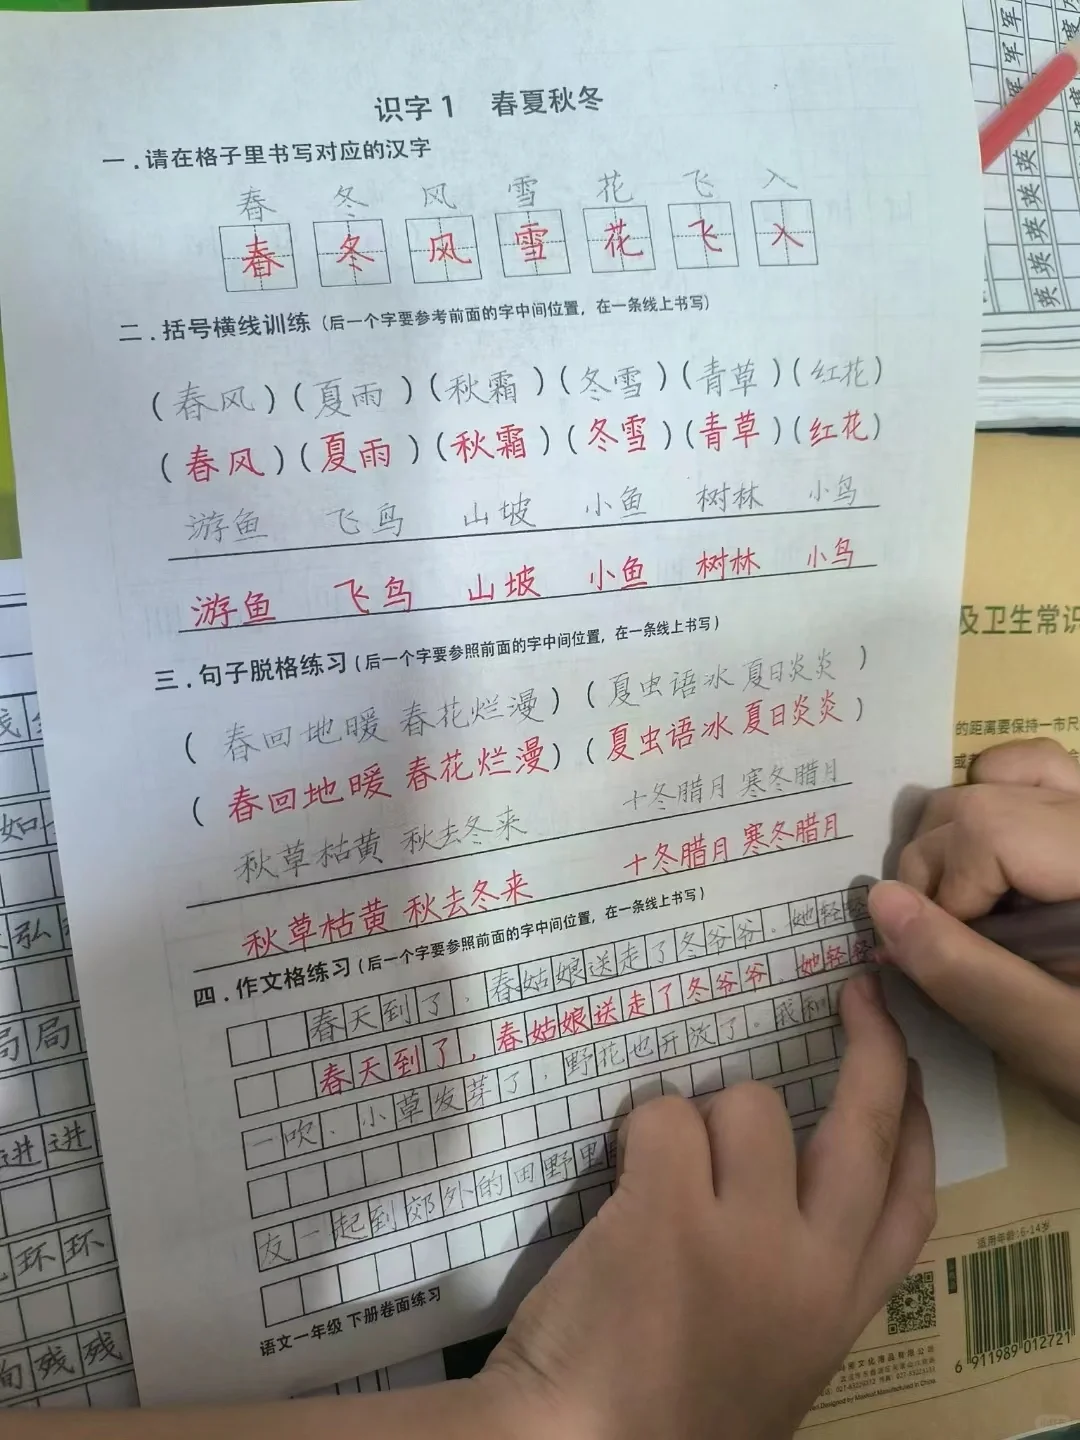 识字1 春夏秋冬
一.请在格子里书写对应的汉字
春 冬 风 雪 花 飞 入
春 冬 风 雪 花 飞 入
二.括号横线训练(后一个字要参考前面的字中间位置,在一条线上书写)
(春风)(夏雨)(秋霜)(冬雪)(青草)(红花)
(春风)(夏雨)(秋霜)(冬雪)(青草)(红花)
游鱼 飞鸟 山坡 小鱼 树林 小鸟
游鱼 飞鸟 山坡 小鱼 树林 小鸟
三.句子脱格练习(后一个字要参照前面的字中间位置,在一条线上书写)
(春回地暖 春花烂漫)(夏虫语冰 夏日炎炎)
(春回地暖 春花烂漫)(夏虫语冰 夏日炎炎)
秋草枯黄 秋去冬来 十冬腊月 寒冬腊月
秋草枯黄 秋去冬来 十冬腊月 寒冬腊月
四.作文格练习(后一个字要参照前面的字中间位置,在一条线上书写)
春天到了,春姑娘送走了冬爷爷。她轻轻
春天到了,春姑娘送走了冬爷爷。她轻轻
一吹,小草发芽了,野花也开放了。我和
友一起到郊外的田野里
语文一年级 下册卷面练习
军 军 军
英 英 英 英 英 英
及卫生常识
的距离要保持一市尺
如
弘
局 局
进 进
环 环
残 残
适用年龄:6-14岁
6 911989 012721